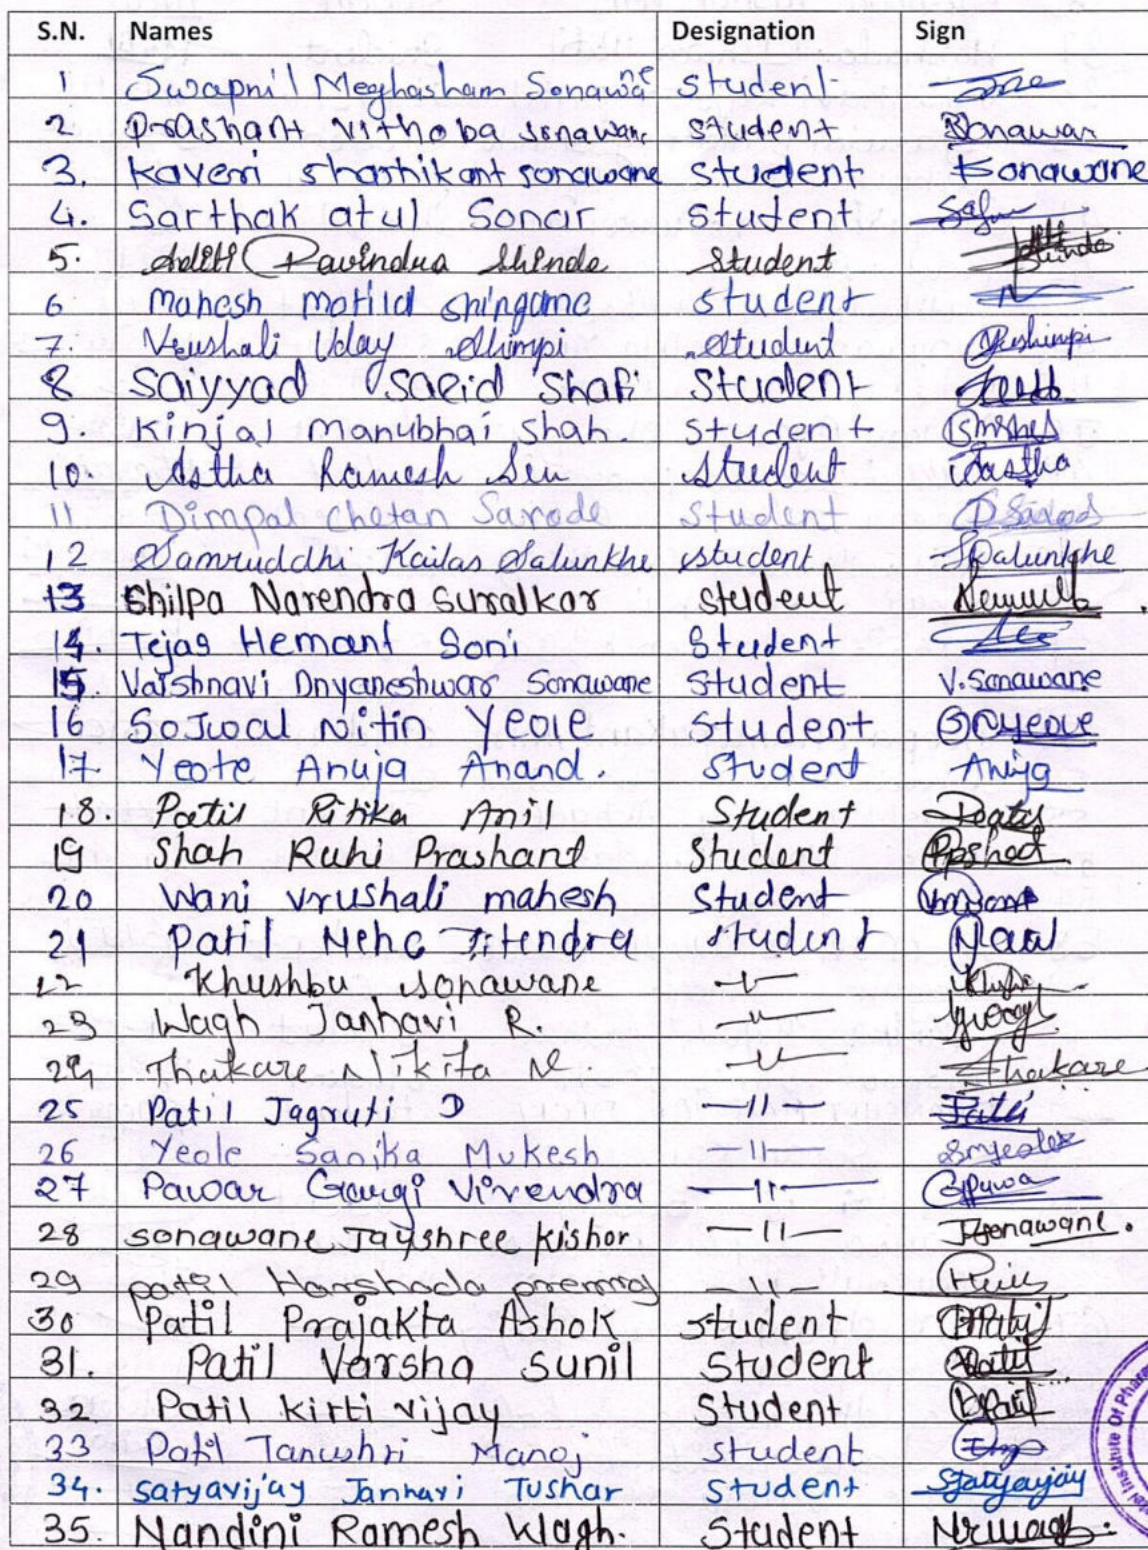 S.N. Names Designation Sign
1 Swapnil Meghasham Sonawane Student
2 Prashant Vithoba Sonawane Student Sonawan
3. Kaveri Shashikant Sonawane Student Sonawane
4. Sarthak atul Sonar Student
5. Aditi Ravindra Shinde Student
6 Mahesh motilal Shingane Student
7. Vrushali Uday Shimpi Student Vushimpi
8 Saiyyad Saeid Shafi Student
9. Kinjal Manubhai Shah. Student
10. Astha Ramesh Sen Student Aastha
11 Dimpal Chetan Sarode Student
12 Samruddhi Kailas Salunkhe Student Salunkhe
13 Shilpa Narendra Suralkar Student
14. Tejas Hemant Soni Student
15. Vaishnavi Dnyaneshwar Sonawane Student V.Sonawane
16 SoJwal Nitin Yeole Student SNYeole
17. Yeole Anuja Anand. Student Anuja
18. Patil Ritika Anil Student
19 Shah Ruhi Prashant Student
20 Wani vrushali mahesh Student
21 Patil Neha Jitendra Student
22 Khushbu Sonawane —〃—
23 Wagh Janhavi R. —〃—
24 Thakare Nikita N. —〃— Thakare
25 Patil Jagruti D —11— Patil
26 Yeole Sanika Mukesh —11— Smyeole
27 Pawar Gargi Virendra —11—
28 Sonawane Jayshree Kishor —11— JSonawane.
29 patil Harshada —11—
30 Patil Prajakta Ashok Student
31. Patil Varsha Sunil Student
32 Patil Kirti vijay Student
33 Patil Tanushri Manoj Student
34. Satyavijay Janhavi Tushar Student
35. Nandini Ramesh Wagh. Student Nrwagh.
Institute Of Phar